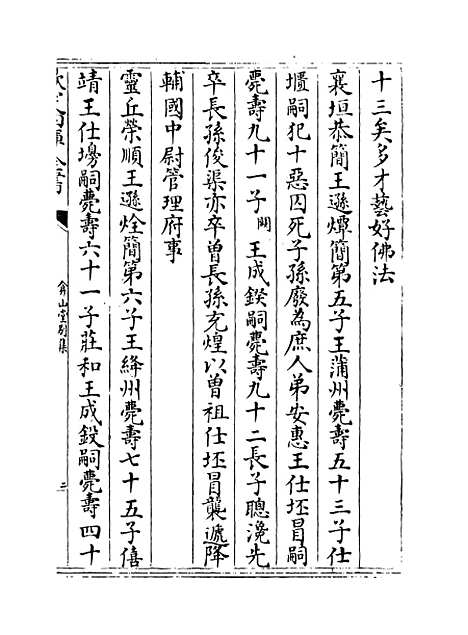 十三矣多才藝好佛法
襄垣恭簡王遜燂簡第五子王蒲州薨壽五十三子仕
壥嗣犯十惡囚死子孫廢為庶人弟安惠王仕坯冒嗣
薨壽九十一子闕王成鍨嗣薨壽九十二長子聰㴜先
卒長孫俊渠亦卒曾長孫充煌以曾祖仕坯冒襲遞降
輔國中尉管理府事
靈丘榮順王遜烇簡第六子王絳州薨壽七十五子僖
靖王仕塝嗣薨壽六十一子莊和王成鈠嗣薨壽四十
欽定四庫全書
弇山堂别集
三